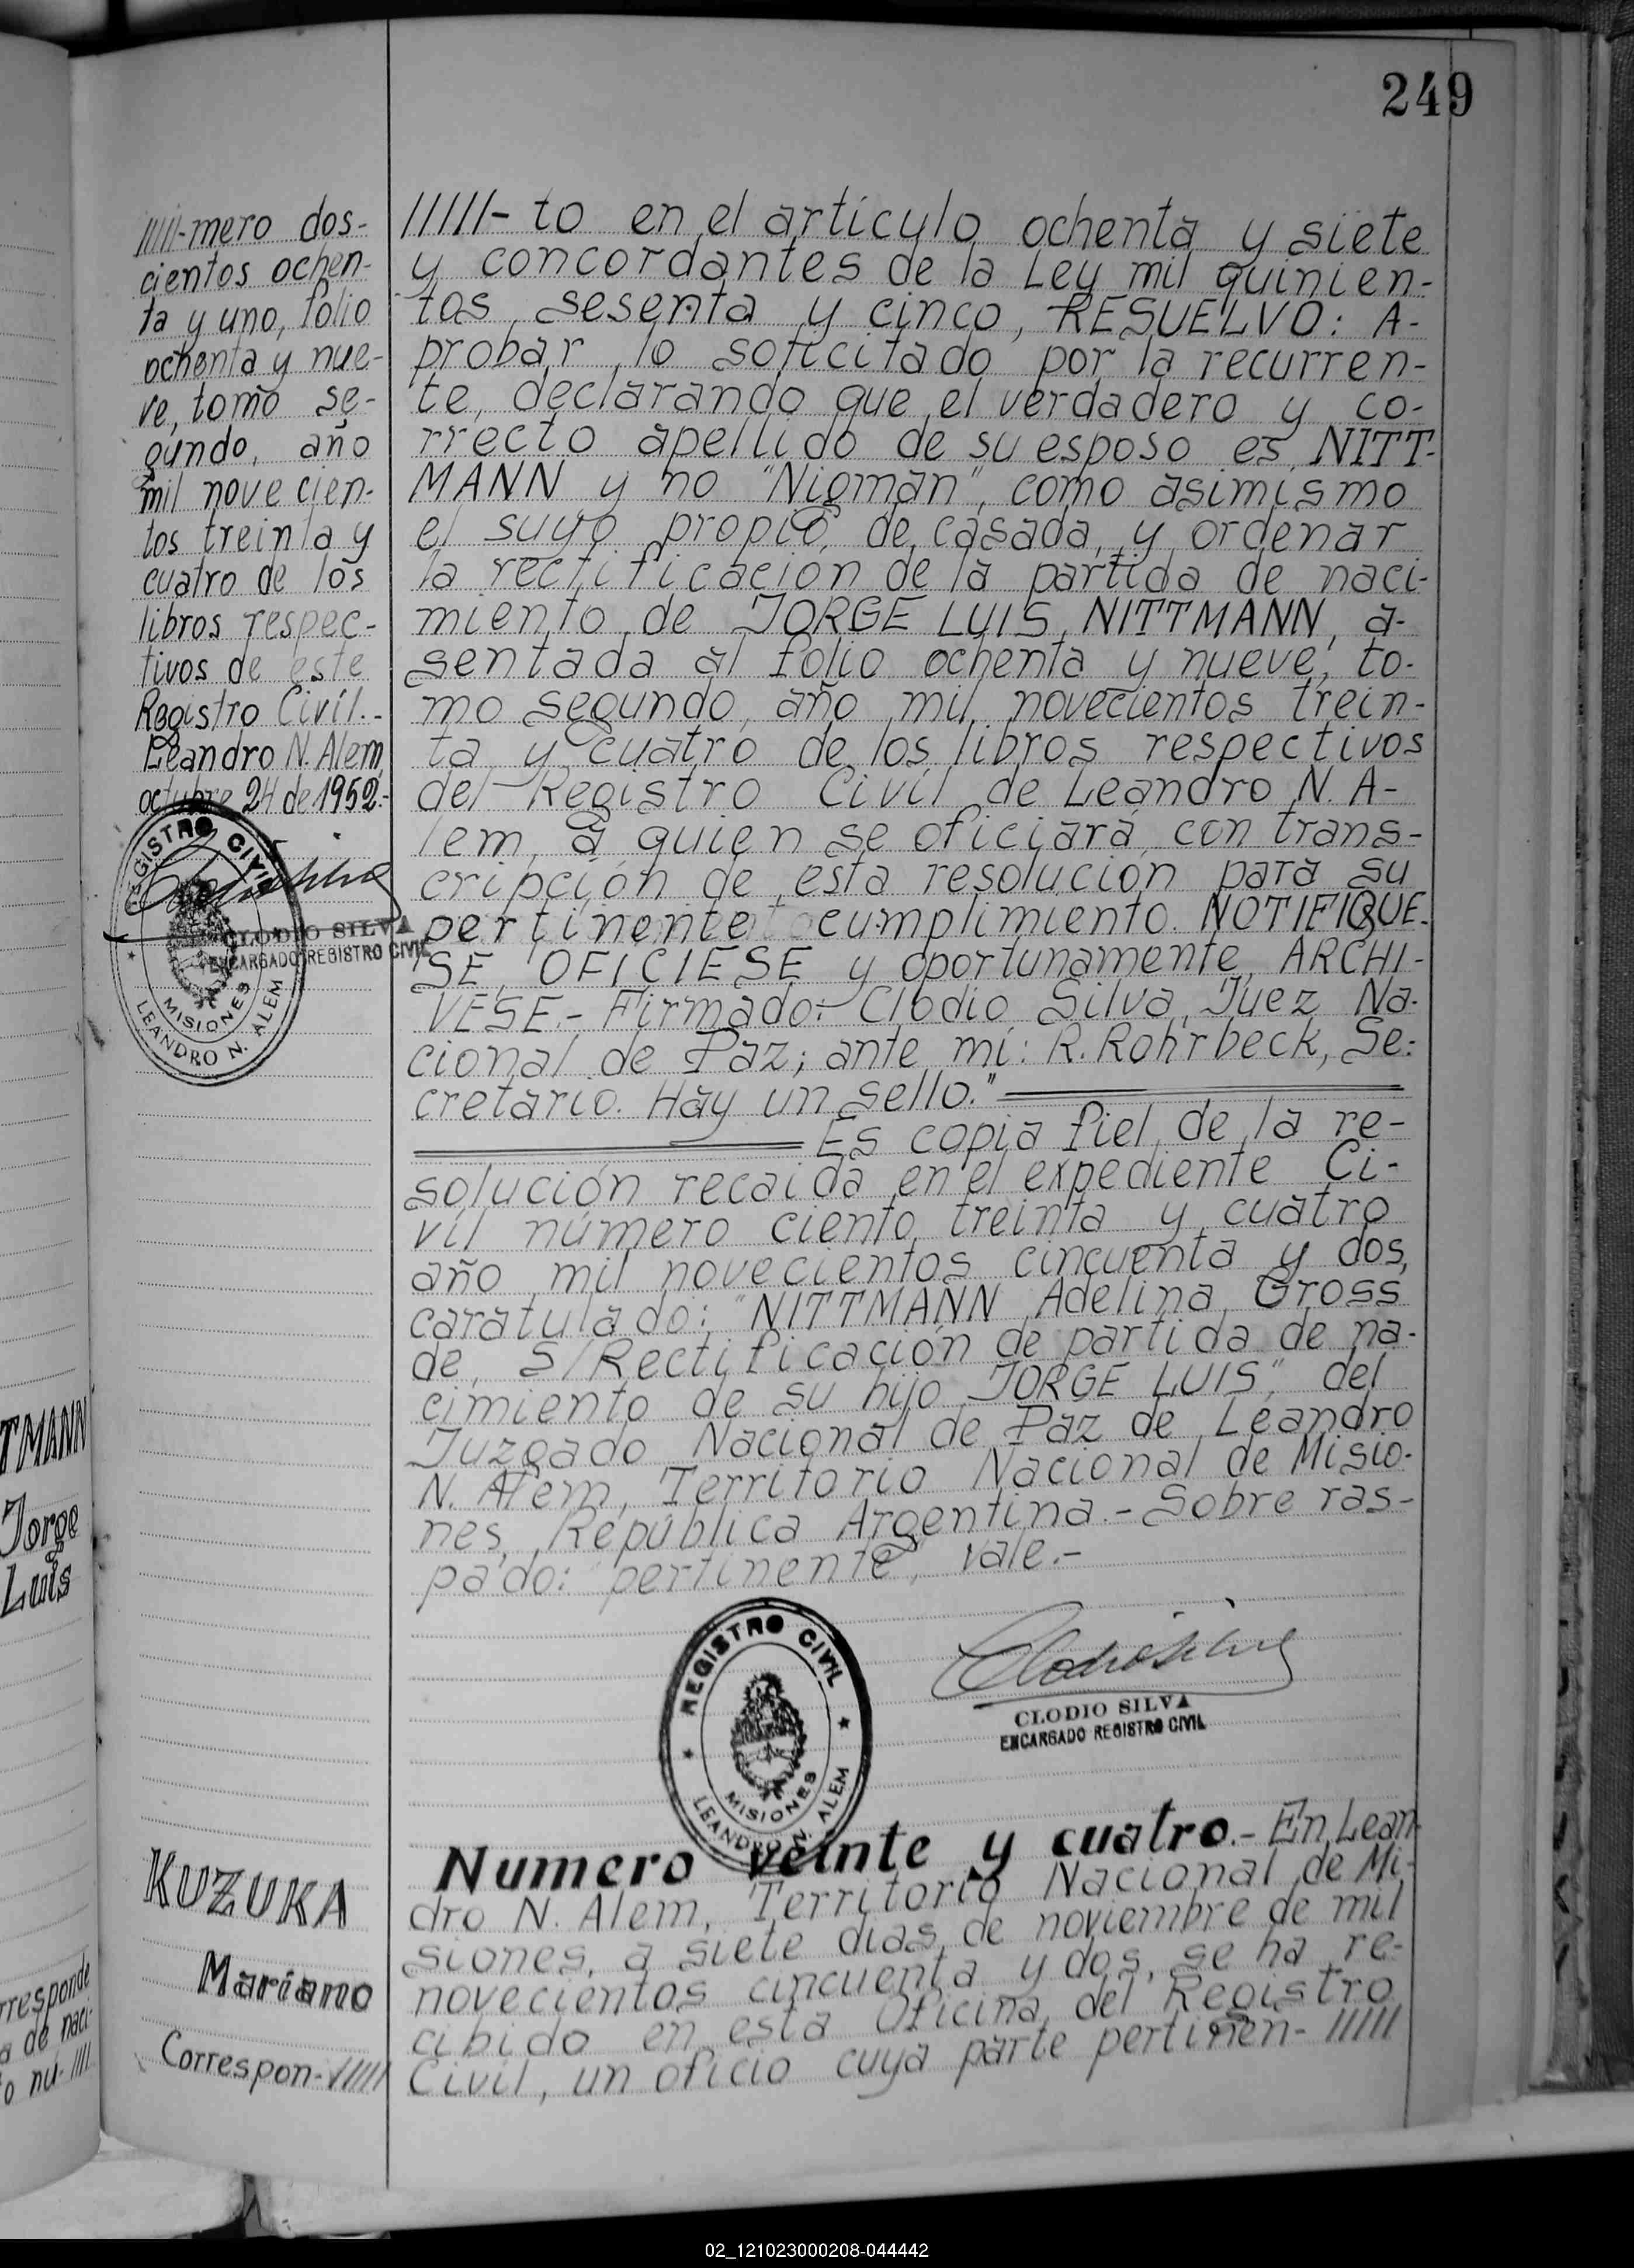 249
/////-mero dos-
cientos ochen-
ta y uno, folio
ochenta y nue-
ve, tomo se-
gundo, año
mil novecien-
tos treinta y
cuatro de los
libros respec-
tivos de este
Registro Civil.-
Leandro N. Alem,
octubre 24 de 1952.-
REGISTRO CIVIL
MISIONES
LEANDRO N. ALEM
CLODIO SILVA
ENCARGADO REGISTRO CIVIL
/////-to en el articulo ochenta y siete
y concordantes de la Ley mil quinien-
tos sesenta y cinco, RESUELVO: A-
probar lo solicitado por la recurren-
te, declarando que el verdadero y co-
rrecto apellido de su esposo es NITT-
MANN y no "Nigman", como asimismo
el suyo propio, de casada, y ordenar
la rectificación de la partida de naci-
miento de JORGE LUIS NITTMANN, a-
sentada al folio ochenta y nueve, to-
mo segundo, año mil novecientos trein-
ta y cuatro de los libros respectivos
del Registro Civil de Leandro N. A-
lem, a quien se oficiará con trans-
cripción de esta resolución para su
pertinente cumplimiento. NOTIFIQUE-
SE, OFICIESE y oportunamente, ARCHI-
VESE.- Firmado: Clodio Silva, Juez Na-
cional de Paz; ante mi: R. Rohrbeck, Se-
cretario. Hay un sello."
Es copia fiel de la re-
solución recaida en el expediente Ci-
vil número ciento treinta y cuatro
año mil novecientos cincuenta y dos,
caratulado: "NITTMANN Adelina Gross
de, S/Rectificación de partida de na-
cimiento de su hijo JORGE LUIS", del
Juzgado Nacional de Paz de Leandro
N. Alem, Territorio Nacional de Misio-
nes, República Argentina.- Sobre ras-
pado: "pertinente", vale.-
REGISTRO CIVIL
MISIONES
LEANDRO N. ALEM
Clodio Silva
CLODIO SILVA
ENCARGADO REGISTRO CIVIL
TMANN
Jorge
Luis
rresponde
a de naci-
o nu-////
KUZUKA
Mariano
Correspon-/////
Numero veinte y cuatro.- En Lean-
dro N. Alem, Territorio Nacional de Mi-
siones, a siete dias de noviembre de mil
novecientos cincuenta y dos, se ha re-
cibido en esta Oficina del Registro
Civil, un oficio cuya parte pertinen-/////
02_121023000208-044442